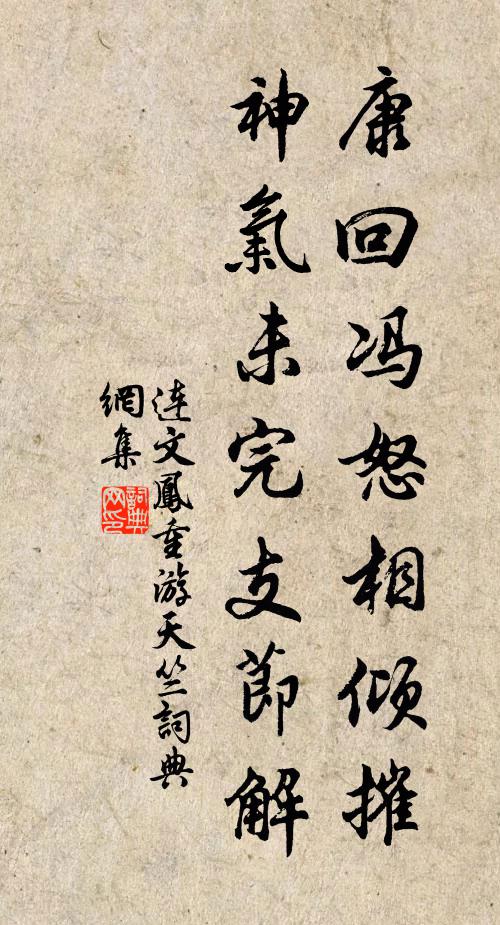 康回冯怒相倾摧
神氣未完支節解
连文鳳重游天竺詞典
網集
詞典
网印